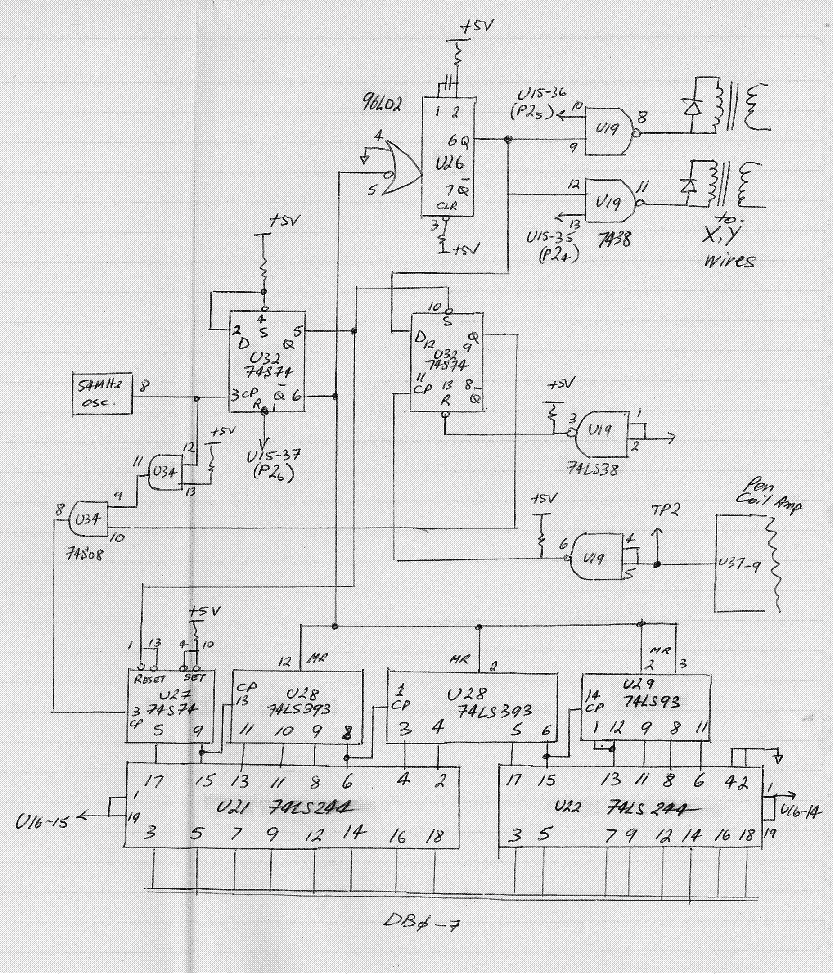 +5V
96L02
1 2
4
5
6 Q
U26
7 Q̅
CLR
3
+5V
U15-36
(P2₅)
10
9
U19
8
12
13
U19
11
U15-35
(P2₄)
7438
to
X,Y
wires
+5V
4
2
S
5
D
Q
U32
74S74
3 CP
Q̅ 6
R
1
U15-37
(P2₆)
54MHz
osc.
8
10
S
D
12
Q
9
U32
74S74
11
CP
13
R
8
Q̅
+5V
3
U19
1
2
74LS38
+5V
12
13
11
U34
9
10
8
U34
74S08
+5V
6
U19
4
5
TP2
Pen
Coil Amp
U37-9
+5V
1 13 4 10
RESET SET
U27
74S74
3
CP
5 9
12 MR
CP
13
U28
74LS393
11 10 9 8
MR 2
1
CP
U28
74LS393
3 4 5 6
MR
2 3
14
CP
U29
74LS93
1 12 9 8 11
17 15 13 11 8 6 4 2
1
19
U16-15
U21 74LS244
3 5 7 9 12 14 16 18
17 15 13 11 8 6 4 2
1
19
U16-14
U22 74LS244
3 5 7 9 12 14 16 18
DBϕ-7